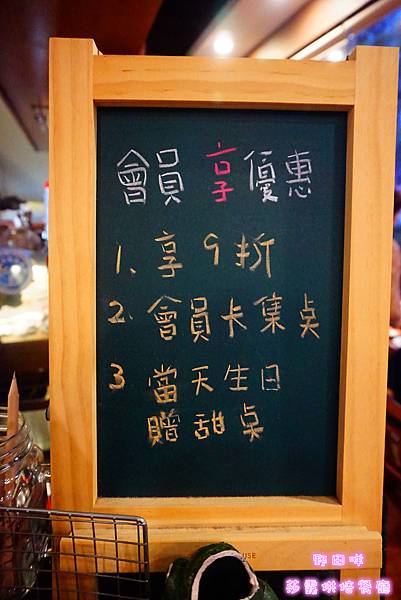 會員享優惠
1、享9折
2、會員卡集桌
3 當天生日
贈甜桌
USE
莎露烘焙餐廳